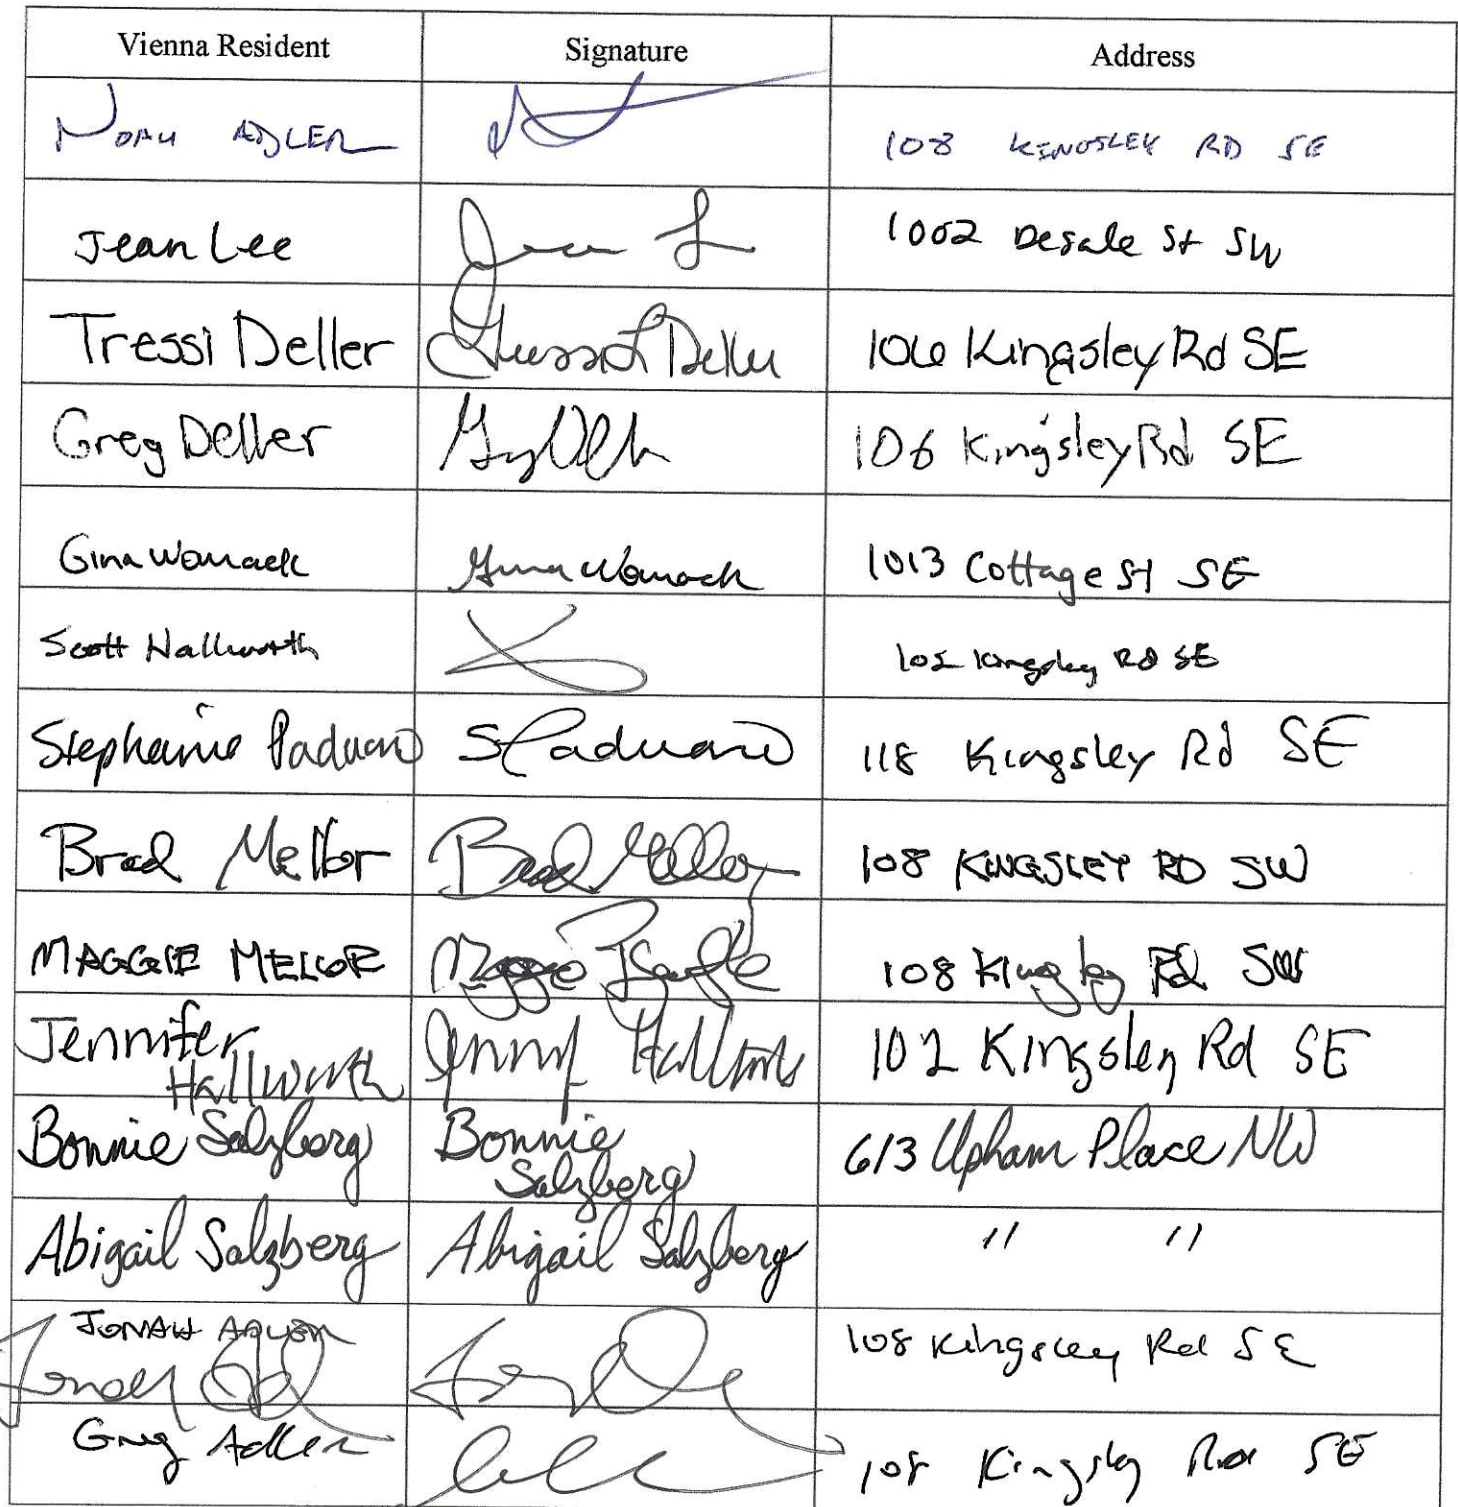 Vienna Resident Signature Address
NOAH ADLER 108 KINGSLEY RD SE
Jean Lee Jean L 1002 Desale St SW
Tressi Deller Tressi L Deller 106 Kingsley Rd SE
Greg Deller 106 Kingsley Rd SE
Gina Womack Gina Womack 1013 Cottage St SE
Scott Hallworth 102 Kingsley RD SE
Stephanie Paduano SPaduano 118 Kingsley Rd SE
Brad Mellor Brad Mellor 108 KINGSLEY RD SW
MAGGIE MELLOR Maggie 108 Kingsley Rd SW
Jennifer
Hallworth Hallworth 102 Kingsley Rd SE
Bonnie Salzberg Bonnie
Salzberg 613 Upham Place NW
Abigail Salzberg Abigail Salzberg " "
JONAH ADLER 108 Kingsley Rd SE
Greg Adler 108 Kingsley Road SE